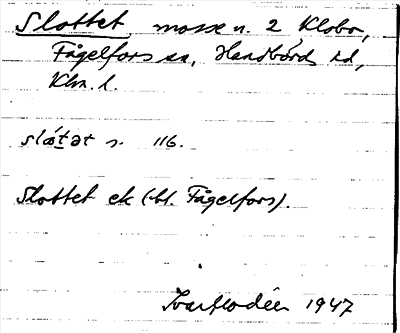 Slottet mosse n. 2 Klobo,
Fågelfors sn, Handbörds hd,
Klm. l.
slɷ́tət s. 116.
Slottet ek (bl. Fågelfors).
1947